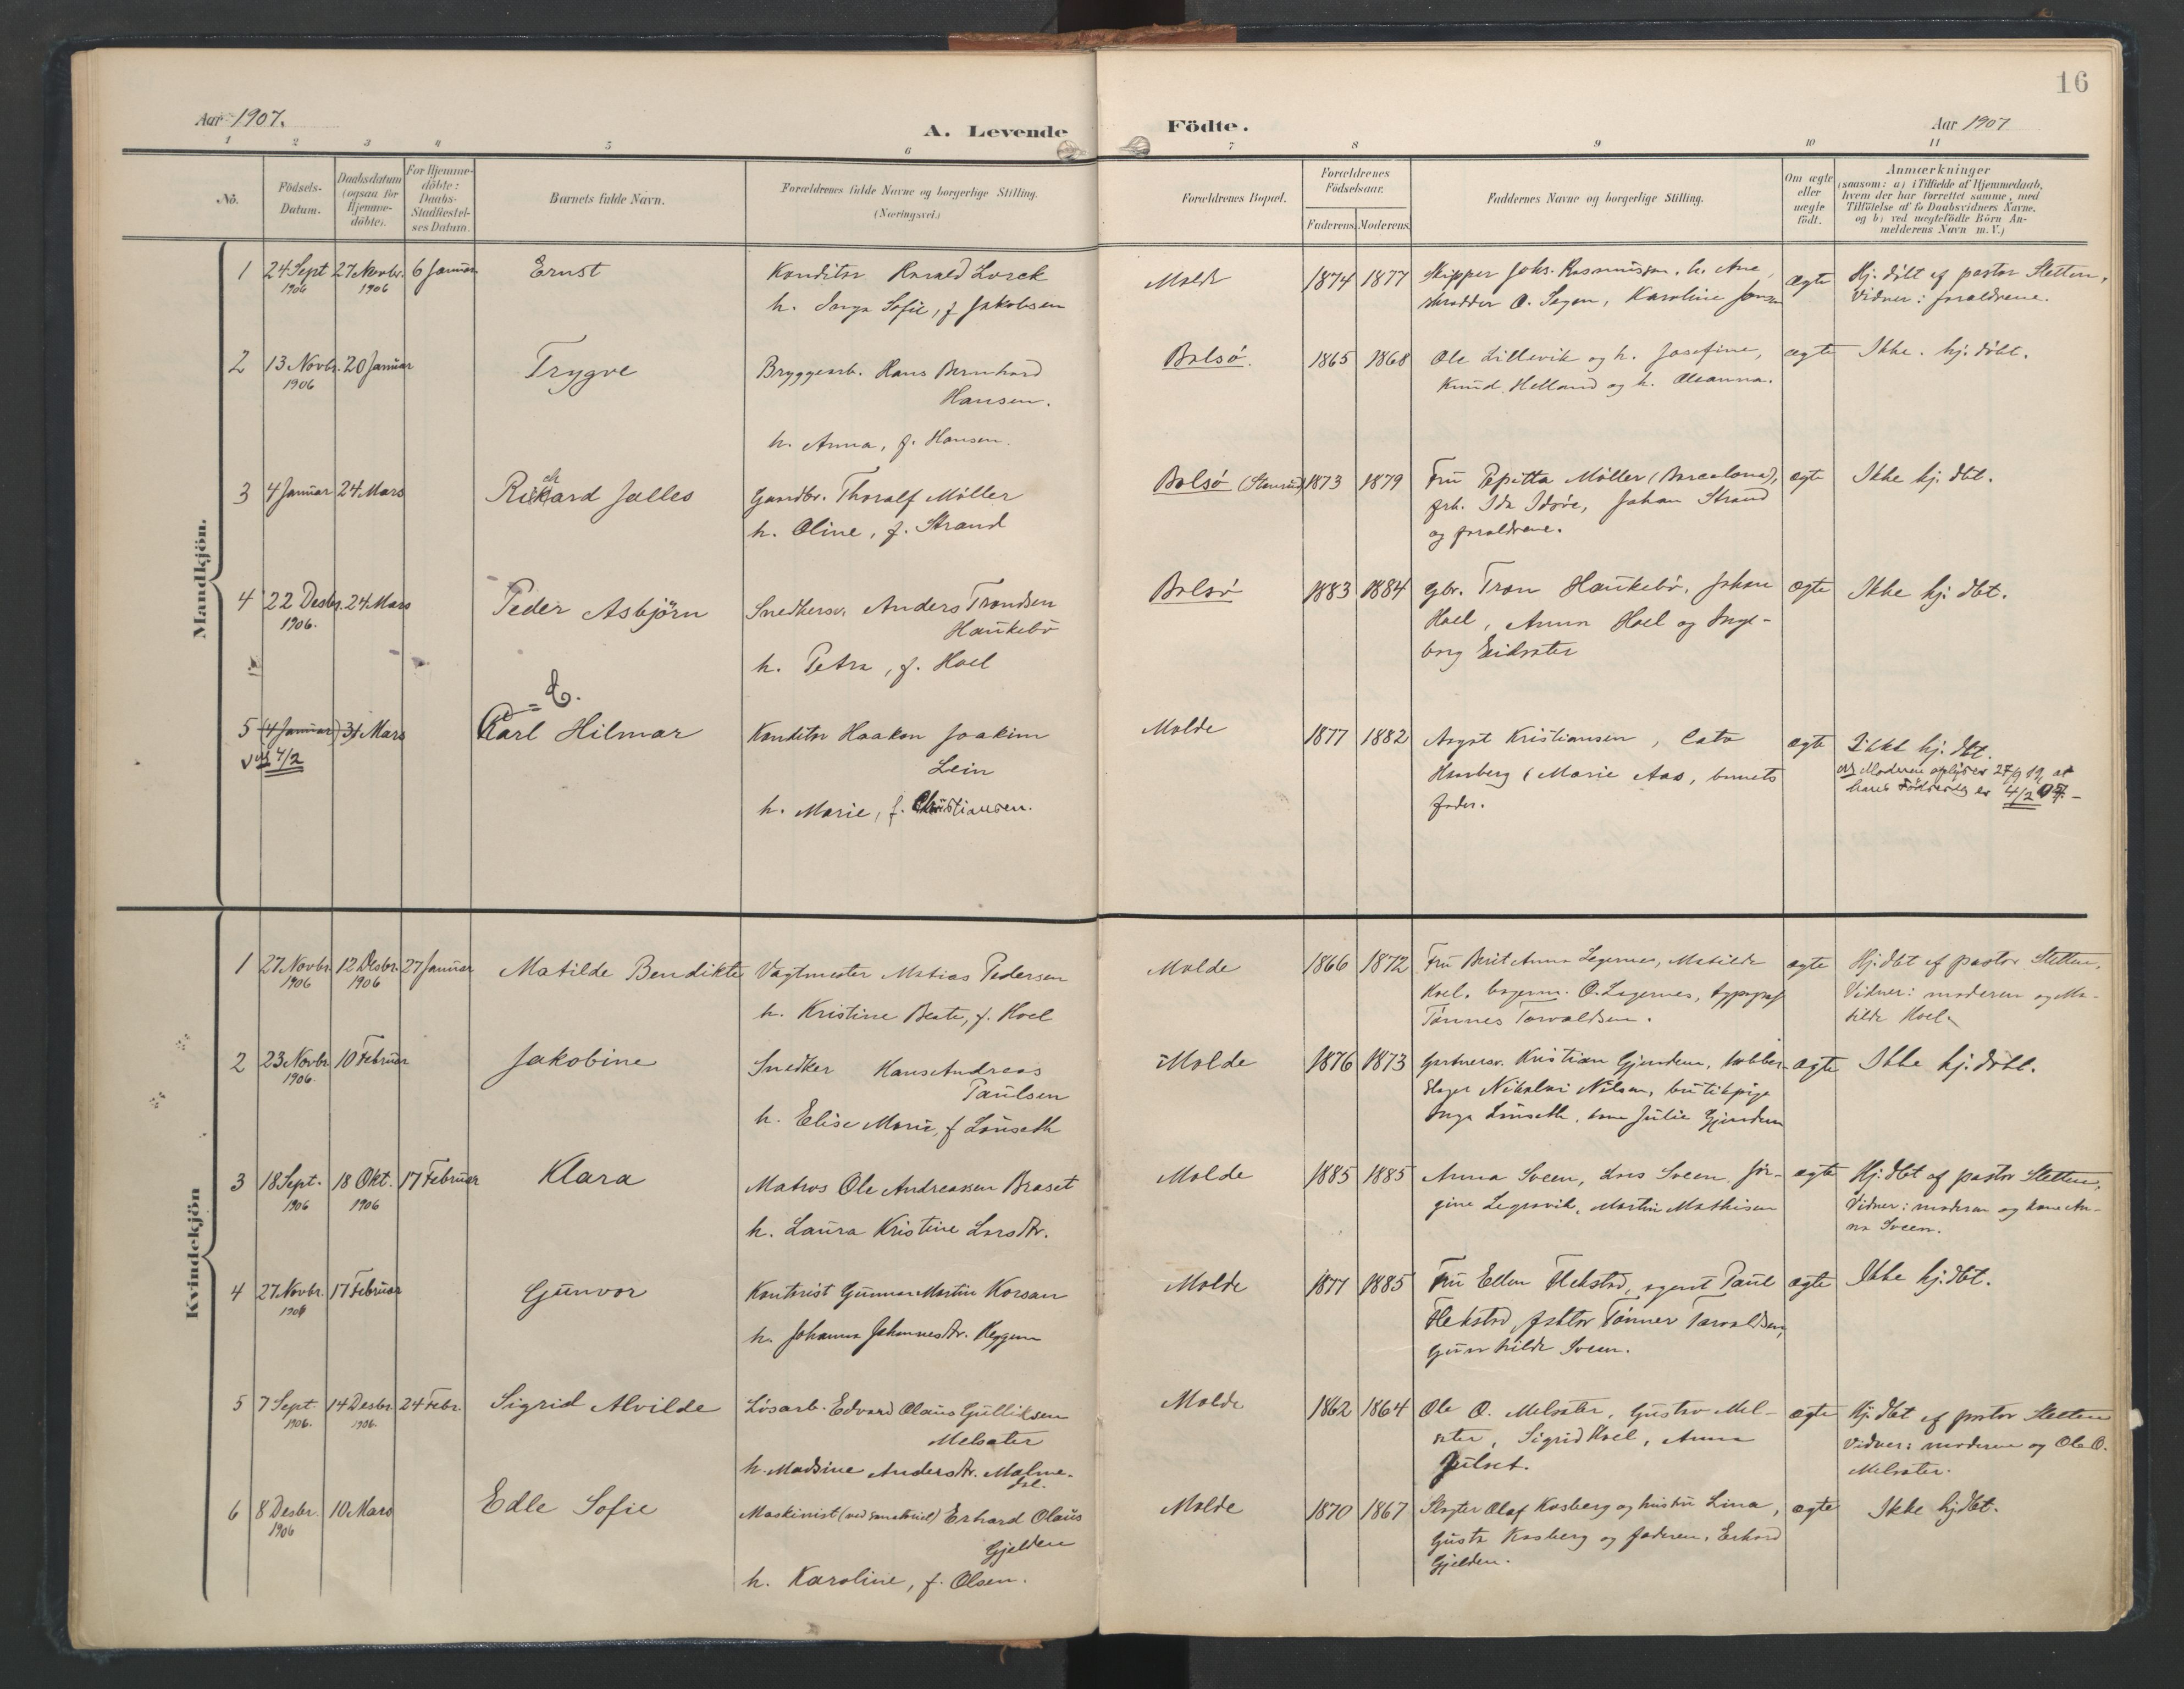 16
Aar 1907.
A. Levende Födte.
Aar 1907
1 2 3 4 5 6 7 8 9 10 11
No.
Födsels-
Datum.
Daabsdatum
(ogsaa for
Hjemme-
döbte).
For Hjemme-
döbte:
Daabs-
Stadfæstel-
ses Datum.
Barnets fulde Navn.
Forældrenes fulde Navne og borgerlige Stilling.
(Næringsvei.)
Forældrenes Bopæl.
Forældrenes
Födselsaar.
Faderens. Moderens.
Faddernes Navne og borgerlige Stilling.
Om ægte
eller
uægte
födt.
Anmærkninger
(saasom: a) i Tilfælde af Hjemmedaab,
hvem der har forrettet samme, med
Tilföielse af to Daabsvidners Navne,
og b) ved uægtefödte Börn An-
melderens Navn m. V.)
Mandkjön.
1 24 Sept 1906 27 Novbr. 1906 6 Januar Ernst
Konditor Lorck
h. Inga Sofie, f Jakobsen
Molde 1874 1877
Skipper Johs. Rasmussen, h. Ane,
skrædder O. Karoline Jensen
ægte
Hj. döbt af pastor Sletten,
Vidner: forældrene.
2 13 Novbr. 1906 20 Januar Trygve
Bryggearb. Hans Bernhard
Hansen.
h. Anna, f. Hansen.
Bolsö. 1865 1868
Ole Lillevik og h. Josefine,
Knud Helland og h. Oleanna.
ægte
Ikke. hj. döbt.
3 4 Januar 24 Mars Richard Jalles
Gaardbr. Thoralf Möller
h. Oline, f. Strand
Bolsö 1873 1879
Fru Pepitta Möller (Barcelona),
Johan Strand
og forældrene.
ægte
Ikke hj. dbt.
4 22 Desbr. 1906. 24 Mars Peder Asbjörn
Snedkersv. Anders Trondsen
Haukebö
h. Petra, f. Hoel
Bolsö 1883 1884
Gbr. Tron Haukebö, Johan
Hoel, Anna Hoel og Inge-
borg
ægte
Ikke hj. dbt.
5 (4 Januar) 31 Mars Karl Hilmar
4/2
Konditor Haakon Joakim
Lein
h. Marie, f. Christiansen.
Molde 1877 1882
Kristiansen,
Marie Aas, barnets
fader.
ægte
Ikke hj. dbt.
Moderen oplyser 27/9 19, at
hans Födselsdag er 4/2 07.
Kvindekjön
1 27 Novbr. 1906 12 Desbr. 1906 27 Januar Matilde Bendikte
Vagtmester Matias Pedersen
h. Kristine Beate, f. Hoel
Molde 1866 1872
Fru Berit Anna Legernes, Matilde
Hoel, O. Legernes, typograf
Tönnes Torvaldsen.
ægte
Hj. dbt af pastor Sletten,
Vidner: moderen og Ma-
tilde Hoel.
2 23 Novbr. 1906. 10 Februar Jakobine
Snedker Hans Andreas
Paulsen
h. Elise Marie, f Lönseth
Molde 1876 1873
Gartnersv. Kristian Gjendem, kobber-
slager Nikolai Nilsen, butikpige
Inga Lönseth, Julie Gjendem
ægte
Ikke hj. döbt.
3 18 Sept. 1906 18 Okt. 1906 17 Februar Klara
Matros Ole Andreassen Braset
h. Laura Kristine Larsdtr.
Molde 1885 1885
Anna Sveen, Lars Sveen, Jör-
gine Legrovik, Martin Mathisen
ægte
Hj. dbt af pastor Sletten,
Vidner: moderen og kone An-
na Sveen.
4 27 Novbr. 1906 17 Februar Gunvor
Kontorist Gunnar Martin Korsan
h. Johanna Johannesdtr.
Molde 1877 1885
Fru Ellen Flekstad, agent Paul
Flekstad, faktor Tönnes Torvaldsen,
Gunhilde Sveen.
ægte
Ikke hj. dbt.
5 7 Sept. 1906. 14 Desbr. 1906. 24 Febr. Sigrid Alvilde
Lösarb. Edvard Olaus Gulliksen
Melsæter
h. Madsine Andersdtr. Malme-
dal.
Molde 1862 1864
Ole O. Melsæter, Gustav Mel-
sæter, Sigrid Hoel, Anna
Julset.
ægte
Hj. dbt af pastor Sletten
Vidner: moderen og Ole O.
Melsæter.
6 8 Desbr. 1906 10 Mars Edle Sofie
Maskinist Erhard Olaus
Gjelden
h. Karoline, f. Olsen.
Molde 1870 1867
Slagter Olaf Kosberg og hustru Lina,
Gusta Kosberg og faderen, Erhard
Gjelden.
ægte
Ikke hj. dbt.